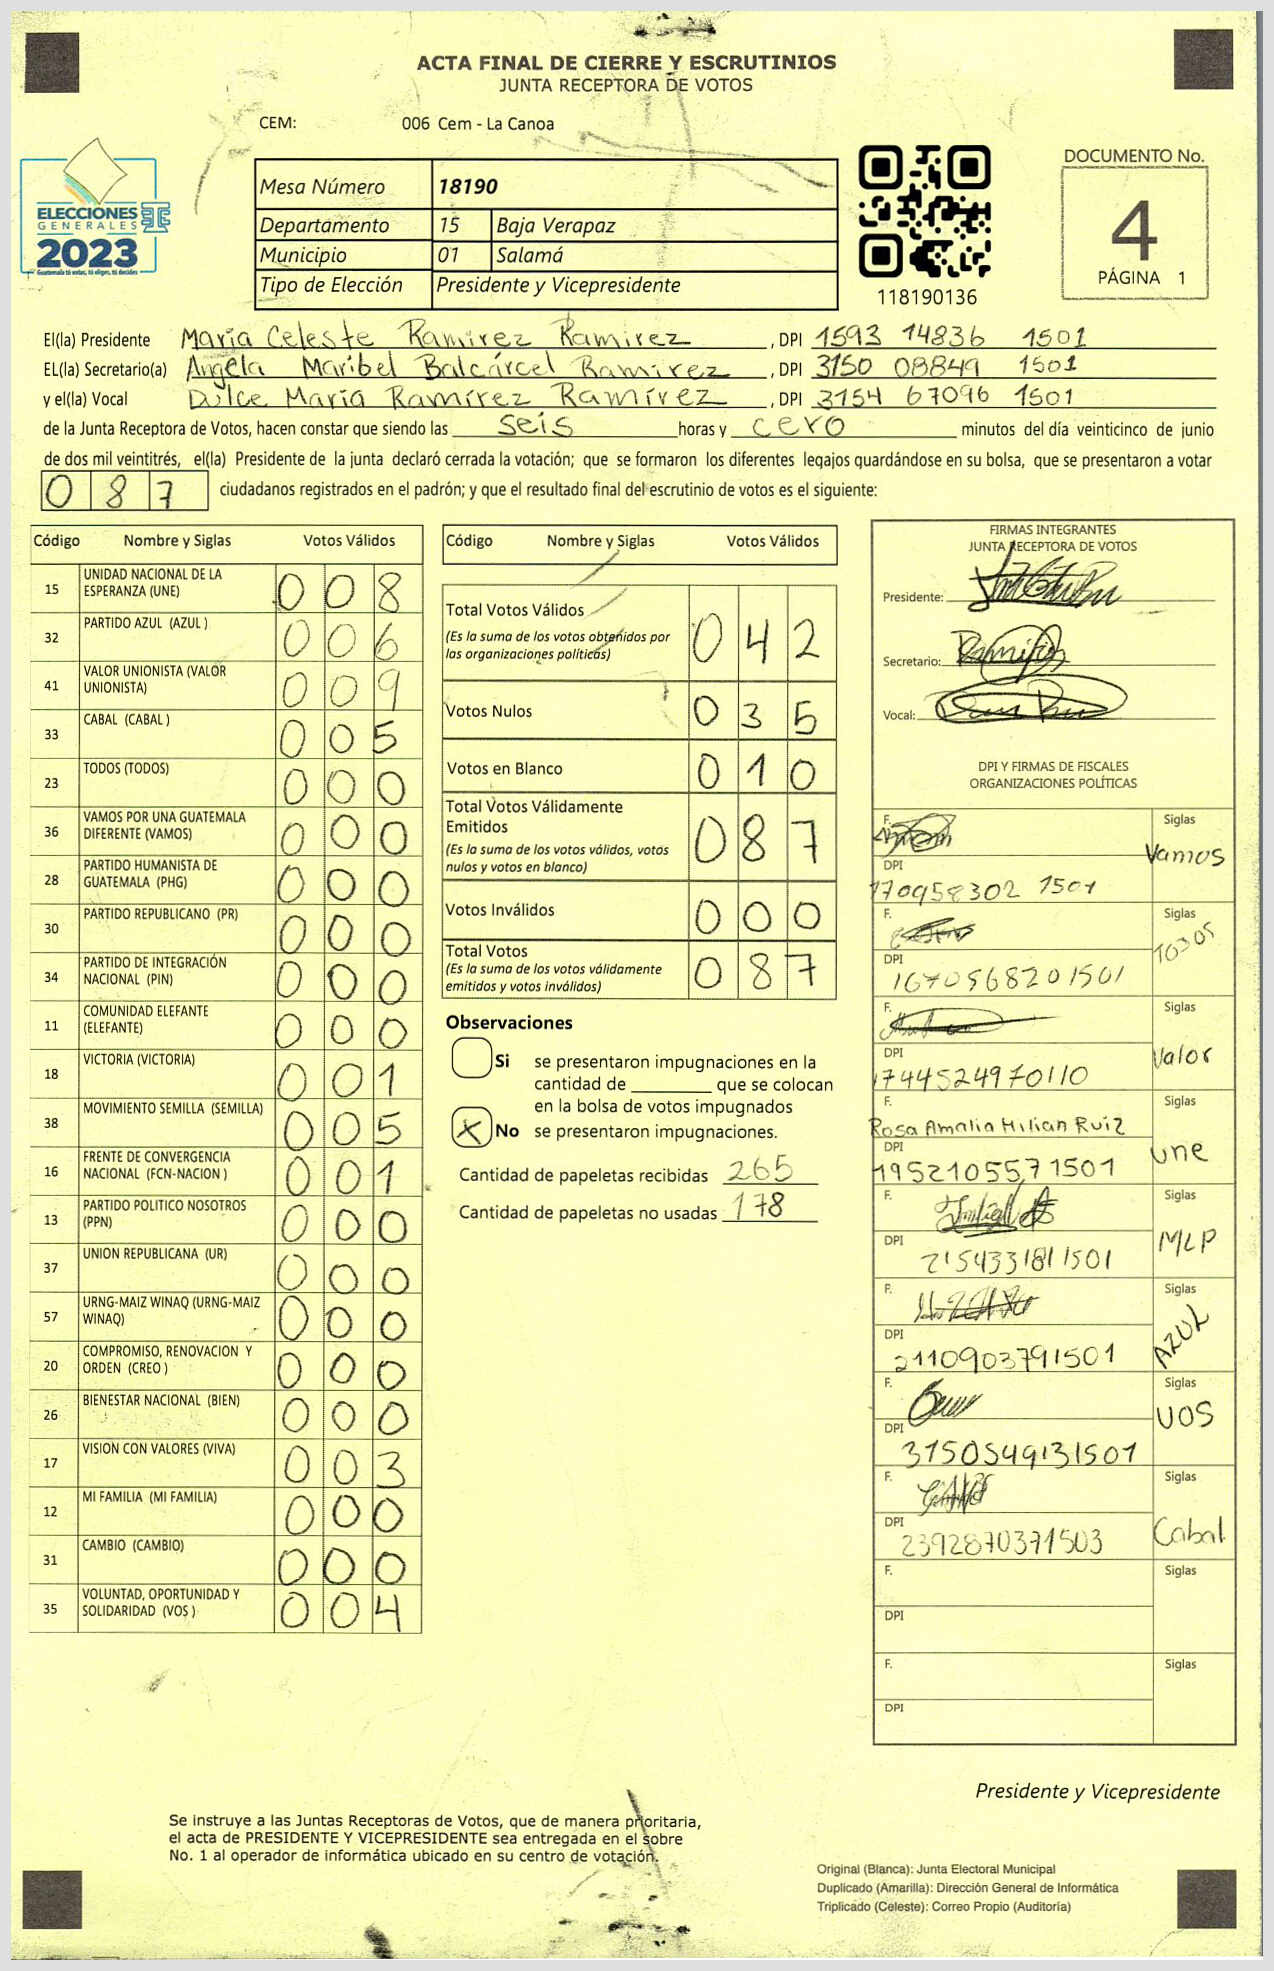 ACTA FINAL DE CIERRE Y ESCRUTINIOS
JUNTA RECEPTORA DE VOTOS
CEM: 006 Cem - La Canoa
ELECCIONES
GENERALES
2023
Guatemala tú votas, tú eliges, tú decides
Mesa Número 18190
Departamento 15 Baja Verapaz
Municipio 01 Salamá
Tipo de Elección Presidente y Vicepresidente
118190136
DOCUMENTO No.
4
PÁGINA 1
El(la) Presidente María Celeste Ramirez Ramirez, DPI 1593 14836 1501
EL(la) Secretario(a) Angela Maribel Balcárcel Ramirez, DPI 3150 08849 1501
y el(la) Vocal Dulce María Ramírez Ramírez, DPI 3154 67096 1501
de la Junta Receptora de Votos, hacen constar que siendo las seis horas y cero minutos del día veinticinco de junio
de dos mil veintitrés, el(la) Presidente de la junta declaró cerrada la votación; que se formaron los diferentes legajos guardándose en su bolsa, que se presentaron a votar
087 ciudadanos registrados en el padrón; y que el resultado final del escrutinio de votos es el siguiente:
Código Nombre y Siglas Votos Válidos
15 UNIDAD NACIONAL DE LA ESPERANZA (UNE) 008
32 PARTIDO AZUL (AZUL ) 006
41 VALOR UNIONISTA (VALOR UNIONISTA) 009
33 CABAL (CABAL ) 005
23 TODOS (TODOS) 000
36 VAMOS POR UNA GUATEMALA DIFERENTE (VAMOS) 000
28 PARTIDO HUMANISTA DE GUATEMALA (PHG) 000
30 PARTIDO REPUBLICANO (PR) 000
34 PARTIDO DE INTEGRACIÓN NACIONAL (PIN) 000
11 COMUNIDAD ELEFANTE (ELEFANTE) 000
18 VICTORIA (VICTORIA) 001
38 MOVIMIENTO SEMILLA (SEMILLA) 005
16 FRENTE DE CONVERGENCIA NACIONAL (FCN-NACION ) 001
13 PARTIDO POLITICO NOSOTROS (PPN) 000
37 UNION REPUBLICANA (UR) 000
57 URNG-MAIZ WINAQ (URNG-MAIZ WINAQ) 000
20 COMPROMISO, RENOVACION Y ORDEN (CREO ) 000
26 BIENESTAR NACIONAL (BIEN) 000
17 VISION CON VALORES (VIVA) 003
12 MI FAMILIA (MI FAMILIA) 000
31 CAMBIO (CAMBIO) 000
35 VOLUNTAD, OPORTUNIDAD Y SOLIDARIDAD (VOS ) 004
Código Nombre y Siglas Votos Válidos
Total Votos Válidos 042
(Es la suma de los votos obtenidos por
las organizaciones políticas)
Votos Nulos 035
Votos en Blanco 010
Total Votos Válidamente
Emitidos 087
(Es la suma de los votos válidos, votos
nulos y votos en blanco)
Votos Inválidos 000
Total Votos 087
(Es la suma de los votos válidamente
emitidos y votos inválidos)
Observaciones
Si se presentaron impugnaciones en la
cantidad de ________ que se colocan
en la bolsa de votos impugnados
X No se presentaron impugnaciones.
Cantidad de papeletas recibidas 265
Cantidad de papeletas no usadas 178
FIRMAS INTEGRANTES
JUNTA RECEPTORA DE VOTOS
Presidente:
Secretario:
Vocal:
DPI Y FIRMAS DE FISCALES
ORGANIZACIONES POLÍTICAS
F. Siglas
Vamos
DPI
170958302 1501
F. Siglas
TODOS
DPI
1670568201501
F. Siglas
Valor
DPI
1744524970110
F. Siglas
Rosa Amalia Milian Ruiz
une
DPI
1952105571501
F. Siglas
MLP
DPI
2154331811501
F. Siglas
AZUL
DPI
2110903791501
F. Siglas
VOS
DPI
3150549131501
F. Siglas
Cabal
DPI
2392870371503
F. Siglas
DPI
F. Siglas
DPI
Presidente y Vicepresidente
Se instruye a las Juntas Receptoras de Votos, que de manera prioritaria,
el acta de PRESIDENTE Y VICEPRESIDENTE sea entregada en el sobre
No. 1 al operador de informática ubicado en su centro de votación.
Original (Blanca): Junta Electoral Municipal
Duplicado (Amarilla): Dirección General de Informática
Triplicado (Celeste): Correo Propio (Auditoría)